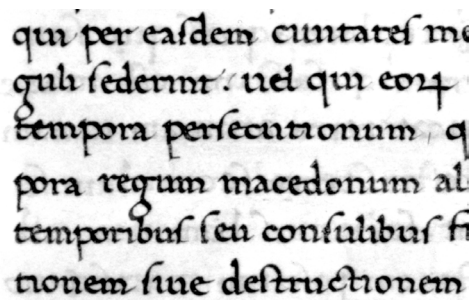 qui per easdem ciuitates
guli sederint. uel qui eoꝝ
tempora persecutionum
pora regum macedonum al
temporibus seu consulibus
tionem siue destructionem